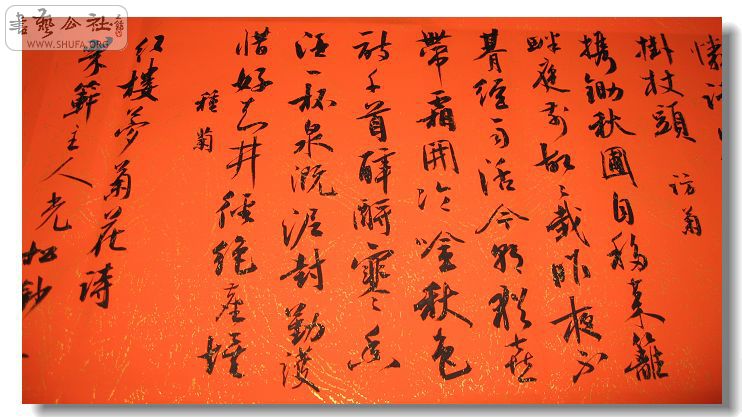 書藝公社
WWW.SHUFA.ORG
掛杖頭 訪菊
携鋤秋圃自移来籬
畔庭前故〻栽昨夜不
朞經雨活今朝猶喜
帶霜開冷吟秋色
詩千首醉酹寒香
酒一杯泉溉泥封勤護
惜好知井徑絶塵埃
種菊
紅樓夢菊花詩
主人光松鈔